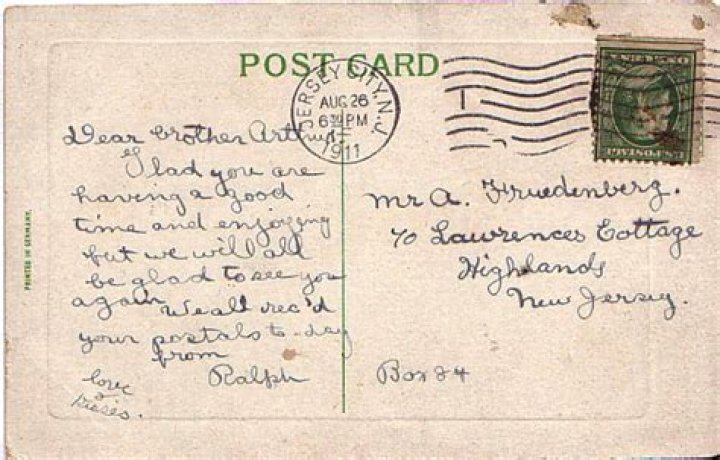 POST CARD
JERSEY CITY, N.J.
AUG 26
6 30 PM
1911
Dear brother Arthur
Glad you are
having a good
time and enjoying
but we will all
be glad to see you
again We all rec'd
your postals to-day
from
Ralph
love
&
Kisses.
Mr A. Fruedenberg.
c/o Lawrences Cottage
Highlands
New Jersey.
Box 84
PRINTED IN GERMANY.